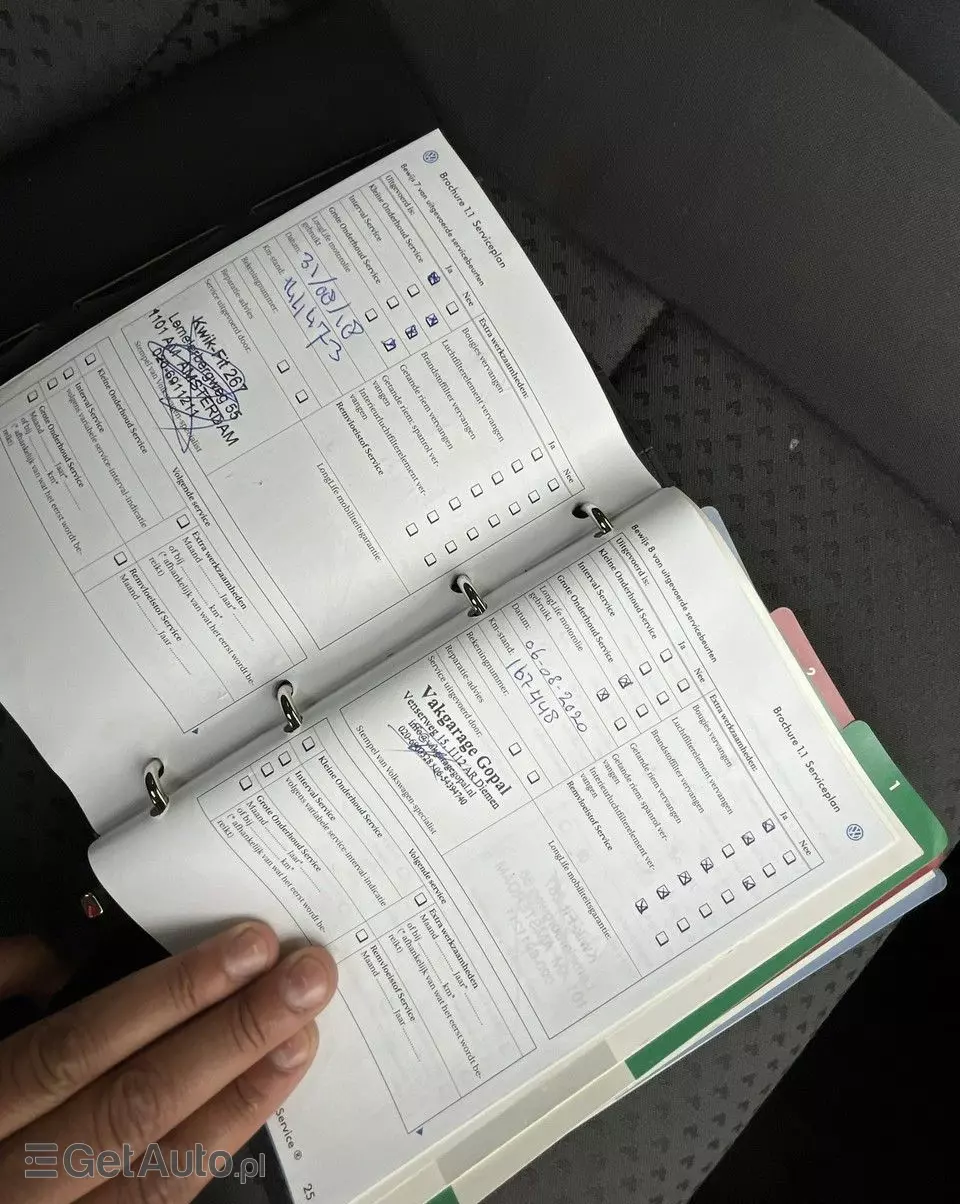 Brochure 1.1 Serviceplan
Bewijs 7 van uitgevoerde servicebeurten
Uitgevoerd is:
Ja
Nee
Kleine Onderhoud Service
Interval Service
Grote Onderhoud Service
LongLife motorolie
gebruikt
Datum: 31/08/18
Km-stand: 144473
Rekeningnummer:
Reparatie-advies
Service uitgevoerd door:
Kwik-Fit 267
55
1101 AMSTERDAM
020-6911211
Stempel van Volkswagen-specialist
Extra werkzaamheden:
Ja
Nee
Bougies vervangen
Luchtfilterelement vervangen
Brandstoffilter vervangen
Getande riem vervangen
Getande riem: spanrol ver-
vangen
Interieurluchtfilterelement ver-
vangen
Remvloeistof Service
LongLife mobiliteitsgarantie:
Volgende service
Kleine Onderhoud Service
Interval Service
volgens variabele service-interval-indicatie
Grote Onderhoud Service
Maand ........ Jaar*........
of bij ........ km*
(*afhankelijk van wat het eerst wordt be-
reikt)
Extra werkzaamheden
Maand ........ Jaar*........
of bij ........ km*
(*afhankelijk van wat het eerst wordt be-
reikt)
Remvloeistof Service
Maand ........ Jaar ........
Brochure 1.1 Serviceplan
Bewijs 8 van uitgevoerde servicebeurten
Uitgevoerd is:
Ja
Nee
Kleine Onderhoud Service
Interval Service
Grote Onderhoud Service
LongLife motorolie
gebruikt
Datum: 06-08-2020
Km-stand: 167448
Rekeningnummer:
Reparatie-advies
Service uitgevoerd door:
Vakgarage Gopal
Venserweg 15, 1112 AR Diemen
Stempel van Volkswagen-specialist
Extra werkzaamheden:
Ja
Nee
Bougies vervangen
Luchtfilterelement vervangen
Brandstoffilter vervangen
Getande riem vervangen
Getande riem: spanrol ver-
vangen
Interieurluchtfilterelement ver-
vangen
Remvloeistof Service
LongLife mobiliteitsgarantie:
Volgende service
Kleine Onderhoud Service
Interval Service
volgens variabele service-interval-indicatie
Grote Onderhoud Service
Maand ........ Jaar*........
of bij ........ km*
(*afhankelijk van wat het eerst wordt be-
reikt)
Extra werkzaamheden
Maand ........ Jaar*........
of bij ........ km*
(*afhankelijk van wat het eerst wordt be-
reikt)
Remvloeistof Service
Maand ........ Jaar ........
Service ®
25
2
1
GetAuto.pl